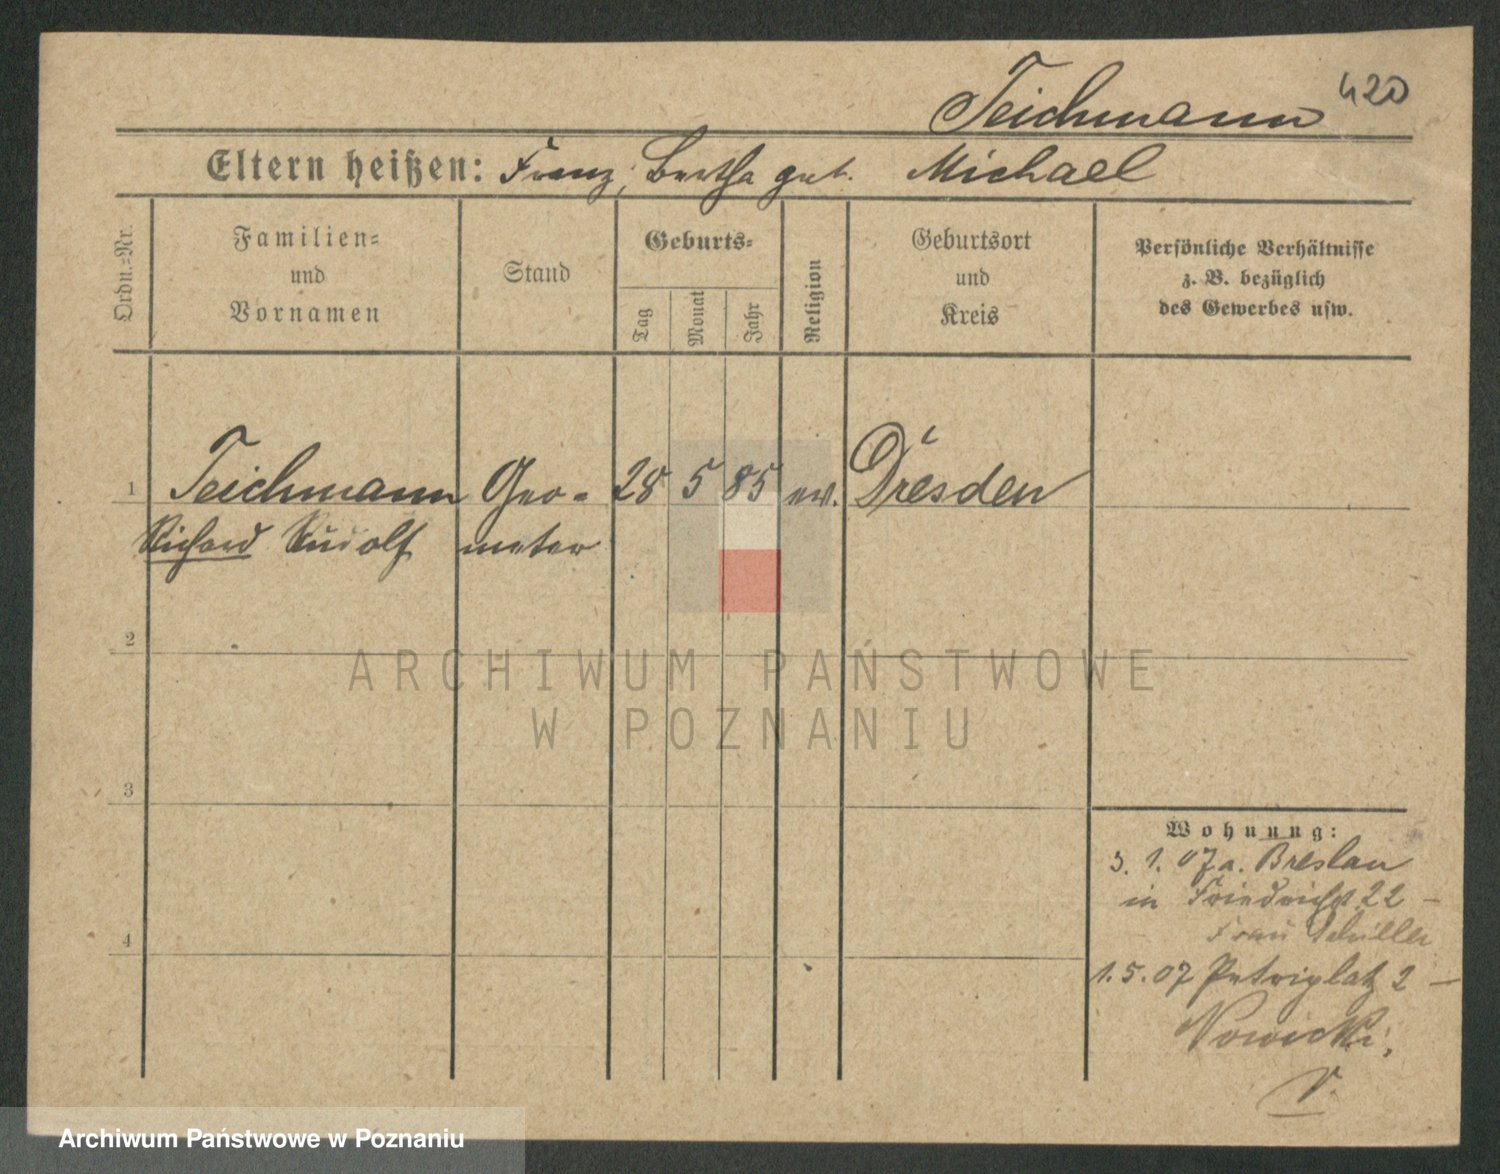 Teichmann 420
Eltern heißen: Franz, Bertha geb. Michael
Ordn.-Nr.
Familien-
und
Vornamen
Stand
Geburts-
Tag
Monat
Jahr
Religion
Geburtsort
und
Kreis
Persönliche Verhältnisse
z. B. bezüglich
des Gewerbes usw.
1 Teichmann Geo- 28 5 85 ev. Dresden
Richard Rudolf meter
2
ARCHIWUM PAŃSTWOWE
W POZNANIU
3
Wohnung:
3. 1. 07 a. Breslau
in Friedrichst 22 -
Frau Schiller
4
1. 5. 07 Petriplatz 2 -
Nowicki,
V.
Archiwum Państwowe w Poznaniu